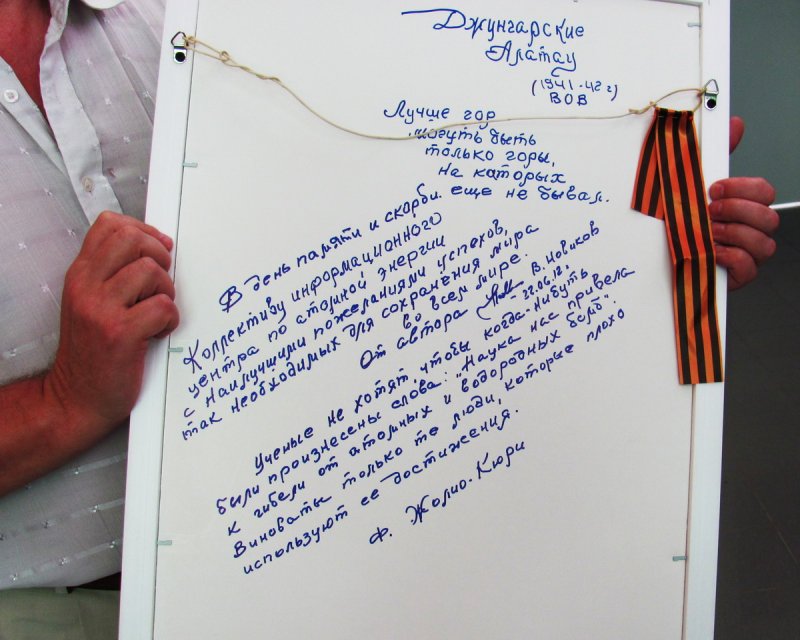 Джунгарские
Алатау
(1941-42 г)
ВОВ
Лучше гор
могут быть
только горы,
на каторых
еще не бывал.
В день памяти и скорби.
Коллективу информационного
центра по атомной энергии
с наилучшими пожеланиями успехов,
так необходимых для сохранения мира
во всем мире.
От автора В. Новиков
22.06.12.
Ученые не хотят, чтобы когда-нибуть
были произнесены слова: "Наука нас привела
к гибели от атомных и водородных бомб".
Виноваты только те люди, которые плохо
используют ее достижения.
Ф. Жолио-Кюри